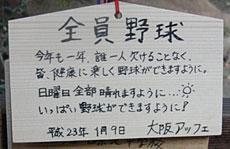 全員野球
今年も一年、誰一人欠けることなく、
皆、健康に楽しく野球ができますように。
日曜日全部晴れますように…
いっぱい野球ができますように!
平成23年1月9日 大阪アッフェ